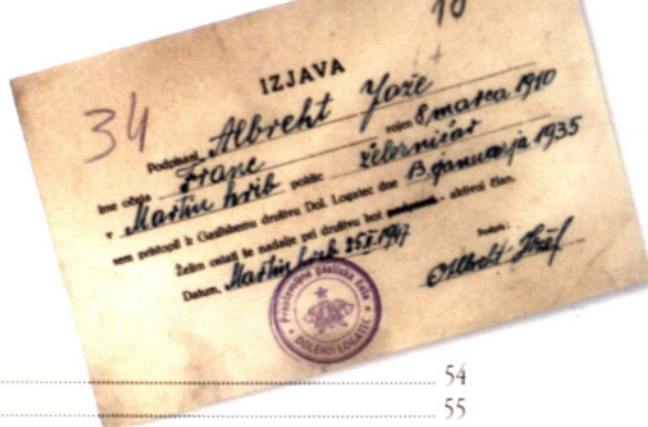 10
34
IZJAVA
Podpisani Albreht Jože
Ime očeta Franc rojen 8 marca 1910
v Martin hrib poklic železničar
sem pristopil k Gasilskemu društvu Dol. Logatec dne 13. januarja 1935
Želim ostati še nadalje pri društvu kot - aktivni član.
Datum, Martin hrib 25.I.1947 Podpis:
Albreht Jožef
Prostovoljna gasilska četa
DOLENJI LOGATEC
54
55